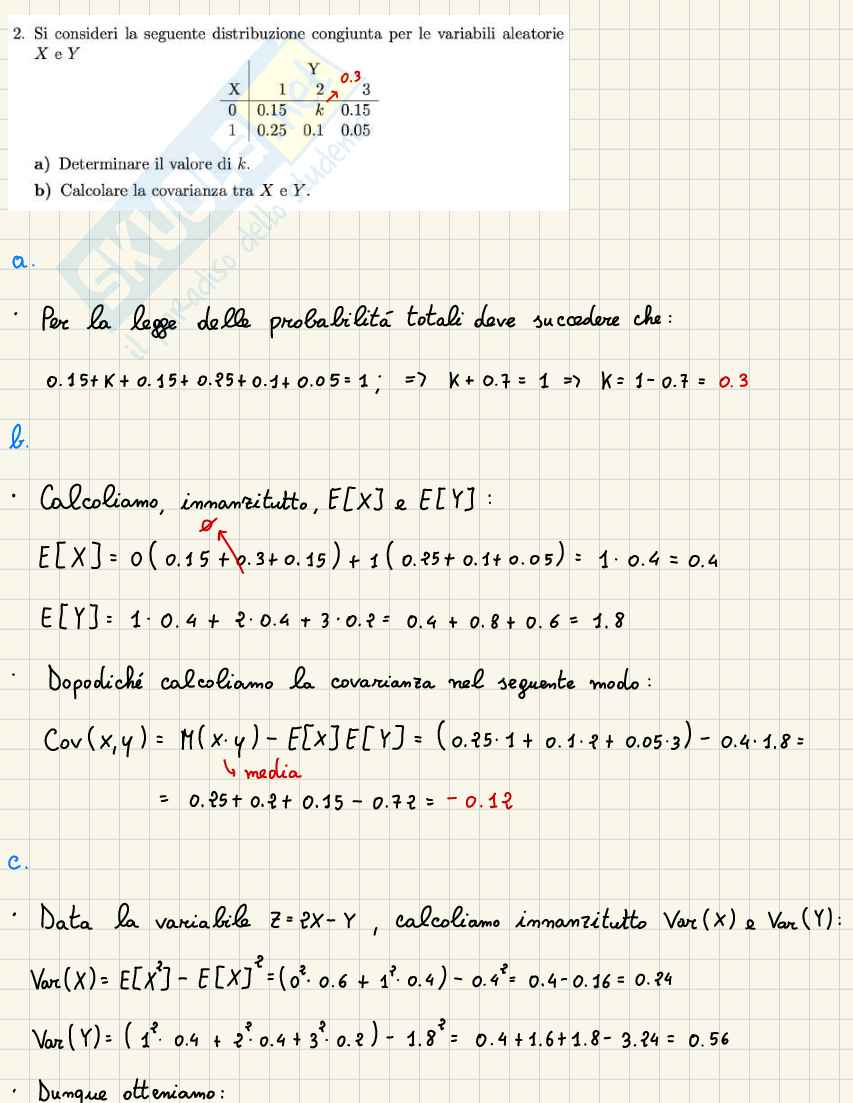 2. Si consideri la seguente distribuzione congiunta per le variabili aleatorie
X e Y
Y
0.3
X 1 2 3
0 0.15 k 0.15
1 0.25 0.1 0.05
a) Determinare il valore di k.
b) Calcolare la covarianza tra X e Y.
SKUOLA.net
il paradiso dello studente
a.
· Per la legge delle probabilitá totali deve succedere che:
0.15+K+0.15+0.25+0.1+0.05=1; => K+0.7=1 => K=1-0.7= 0.3
b.
· Calcoliamo, innanzitutto, E[X] e E[Y]:
0
E[X]= 0(0.15+0.3+0.15)+1(0.25+0.1+0.05)= 1·0.4=0.4
E[Y]= 1·0.4 + 2·0.4 + 3·0.2= 0.4+0.8+0.6=1.8
· Dopodiché calcoliamo la covarianza nel seguente modo:
Cov(x,y)= M(x·y)-E[X]E[Y]=(0.25·1+0.1·2+0.05·3)-0.4·1.8=
↳ media
= 0.25+0.2+0.15-0.72= -0.12
c.
· Data la variabile Z=2X-Y, calcoliamo innanzitutto Var(X) e Var(Y):
Var(X)= E[X²]-E[X]²=(0²·0.6+1²·0.4)-0.4²=0.4-0.16=0.24
Var(Y)=(1²·0.4+2²·0.4+3²·0.2)-1.8²= 0.4+1.6+1.8-3.24=0.56
· Dunque otteniamo: